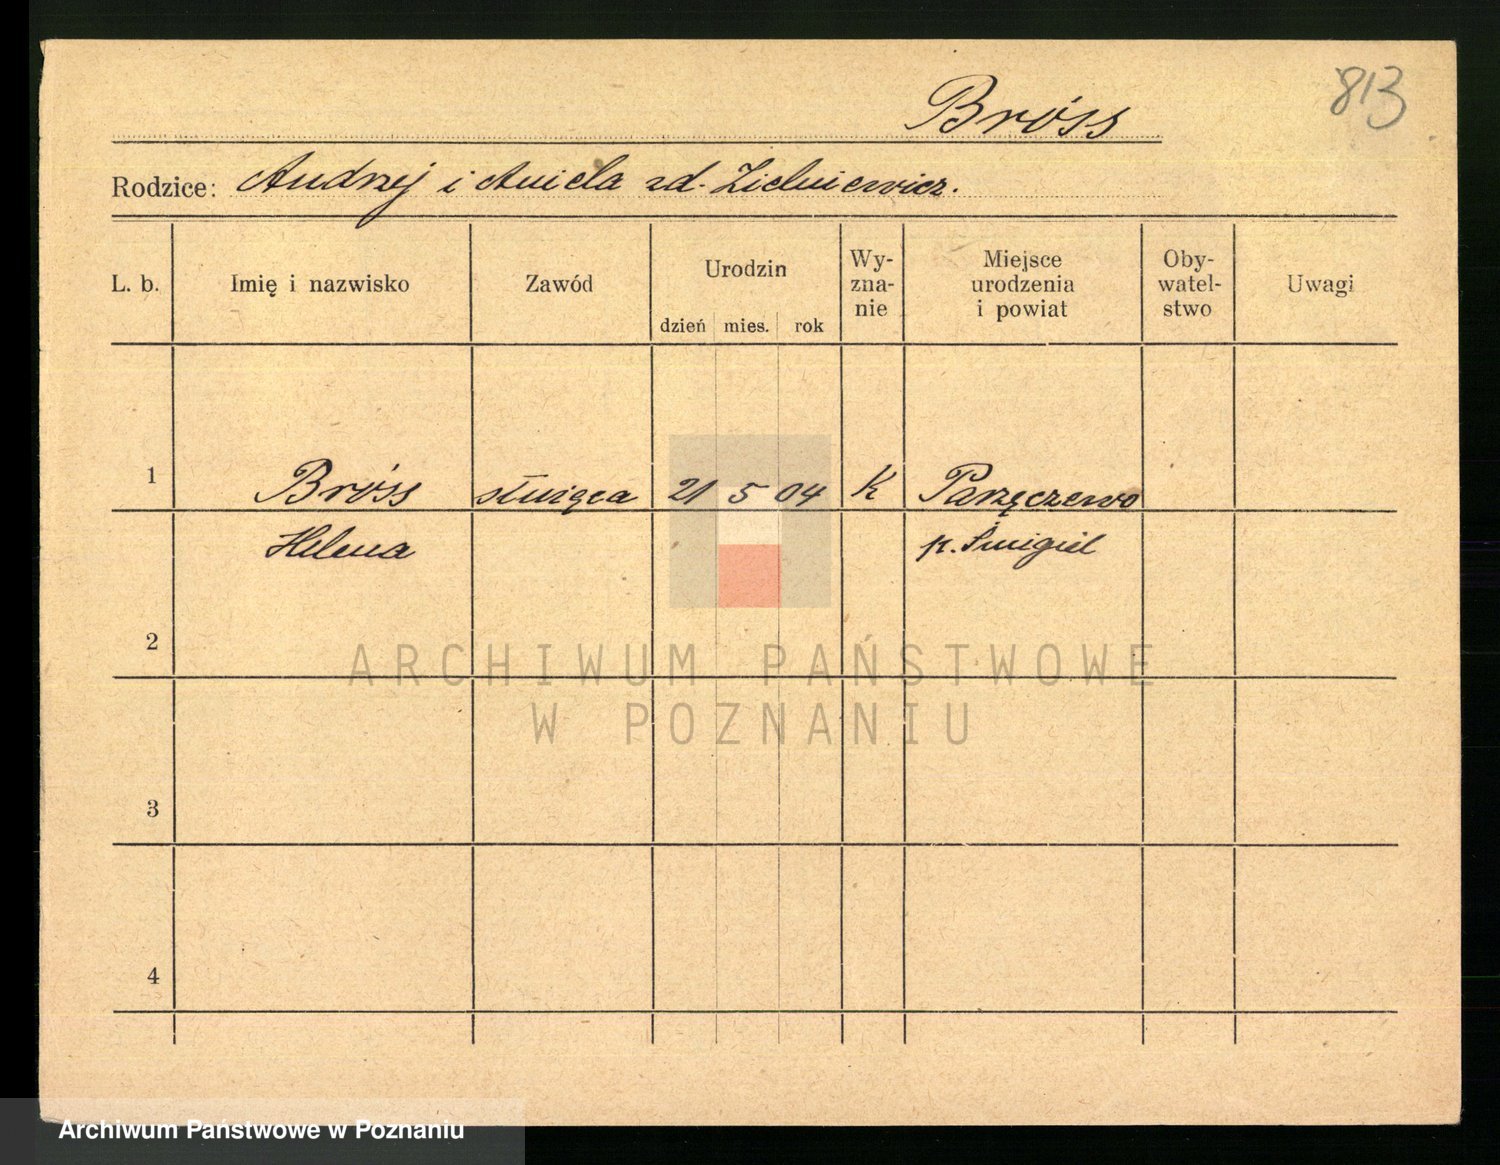 813
Bróss
Rodzice: Andrzej i Aniela zd. Zielniewicz.
L. b.
Imię i nazwisko
Zawód
Urodzin
dzień mies. rok
Wy-
zna-
nie
Miejsce
urodzenia
i powiat
Oby-
watel-
stwo
Uwagi
1 Bróss służąca 21 5 04 K Parzęczewo
Helena p. Śmigiel
2
3
4
ARCHIWUM PAŃSTWOWE
W POZNANIU
Archiwum Państwowe w Poznaniu